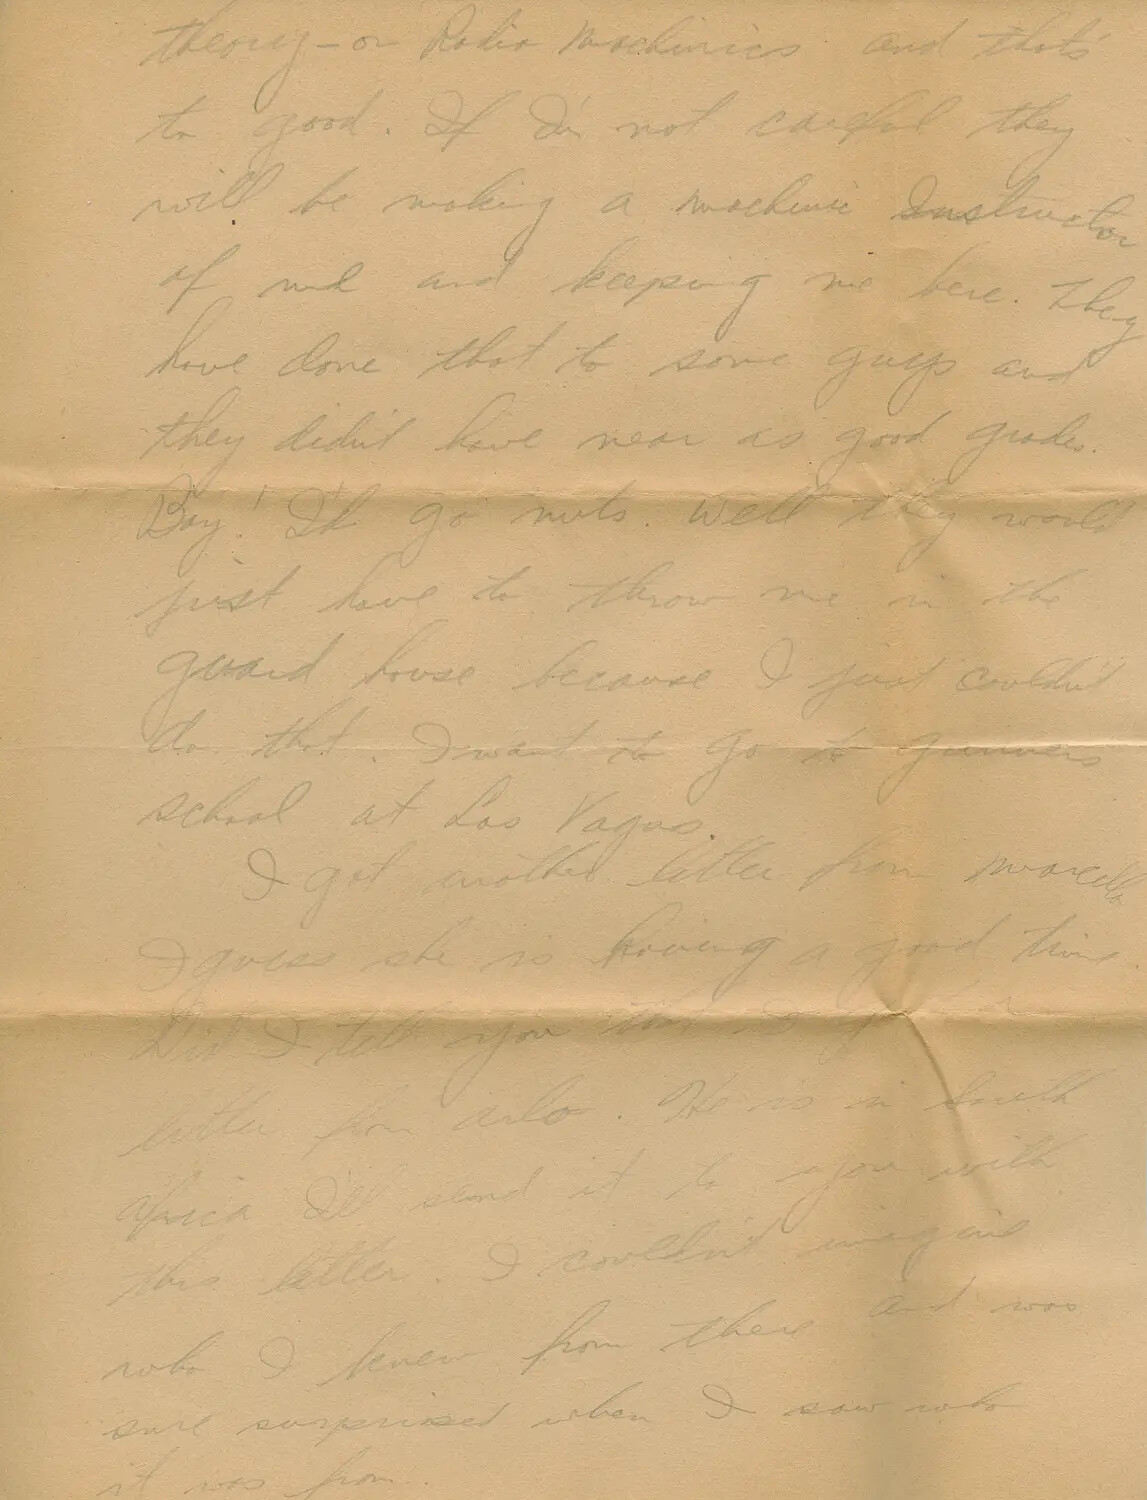 theory - or Radio Mechinics and that's
to good. If I'm not careful they
will be making a mechinic Instructor
of me and keeping me here. They
have done that to some guys and
they didn't have near as good grades.
Boy! I'd go nuts. Well they would
just have to throw me in the
guard house because I just couldn't
do that. I want to go to gunners
school at Las Vagas.
I got another letter from Marcella
I guess she is having a good time.
Did I tell you that I got a
letter from Arlo. He is in South
Africa I'll send it to you with
this letter. I couldn't imagine
who I knew from there and was
sure surprised when I saw who
it was from.